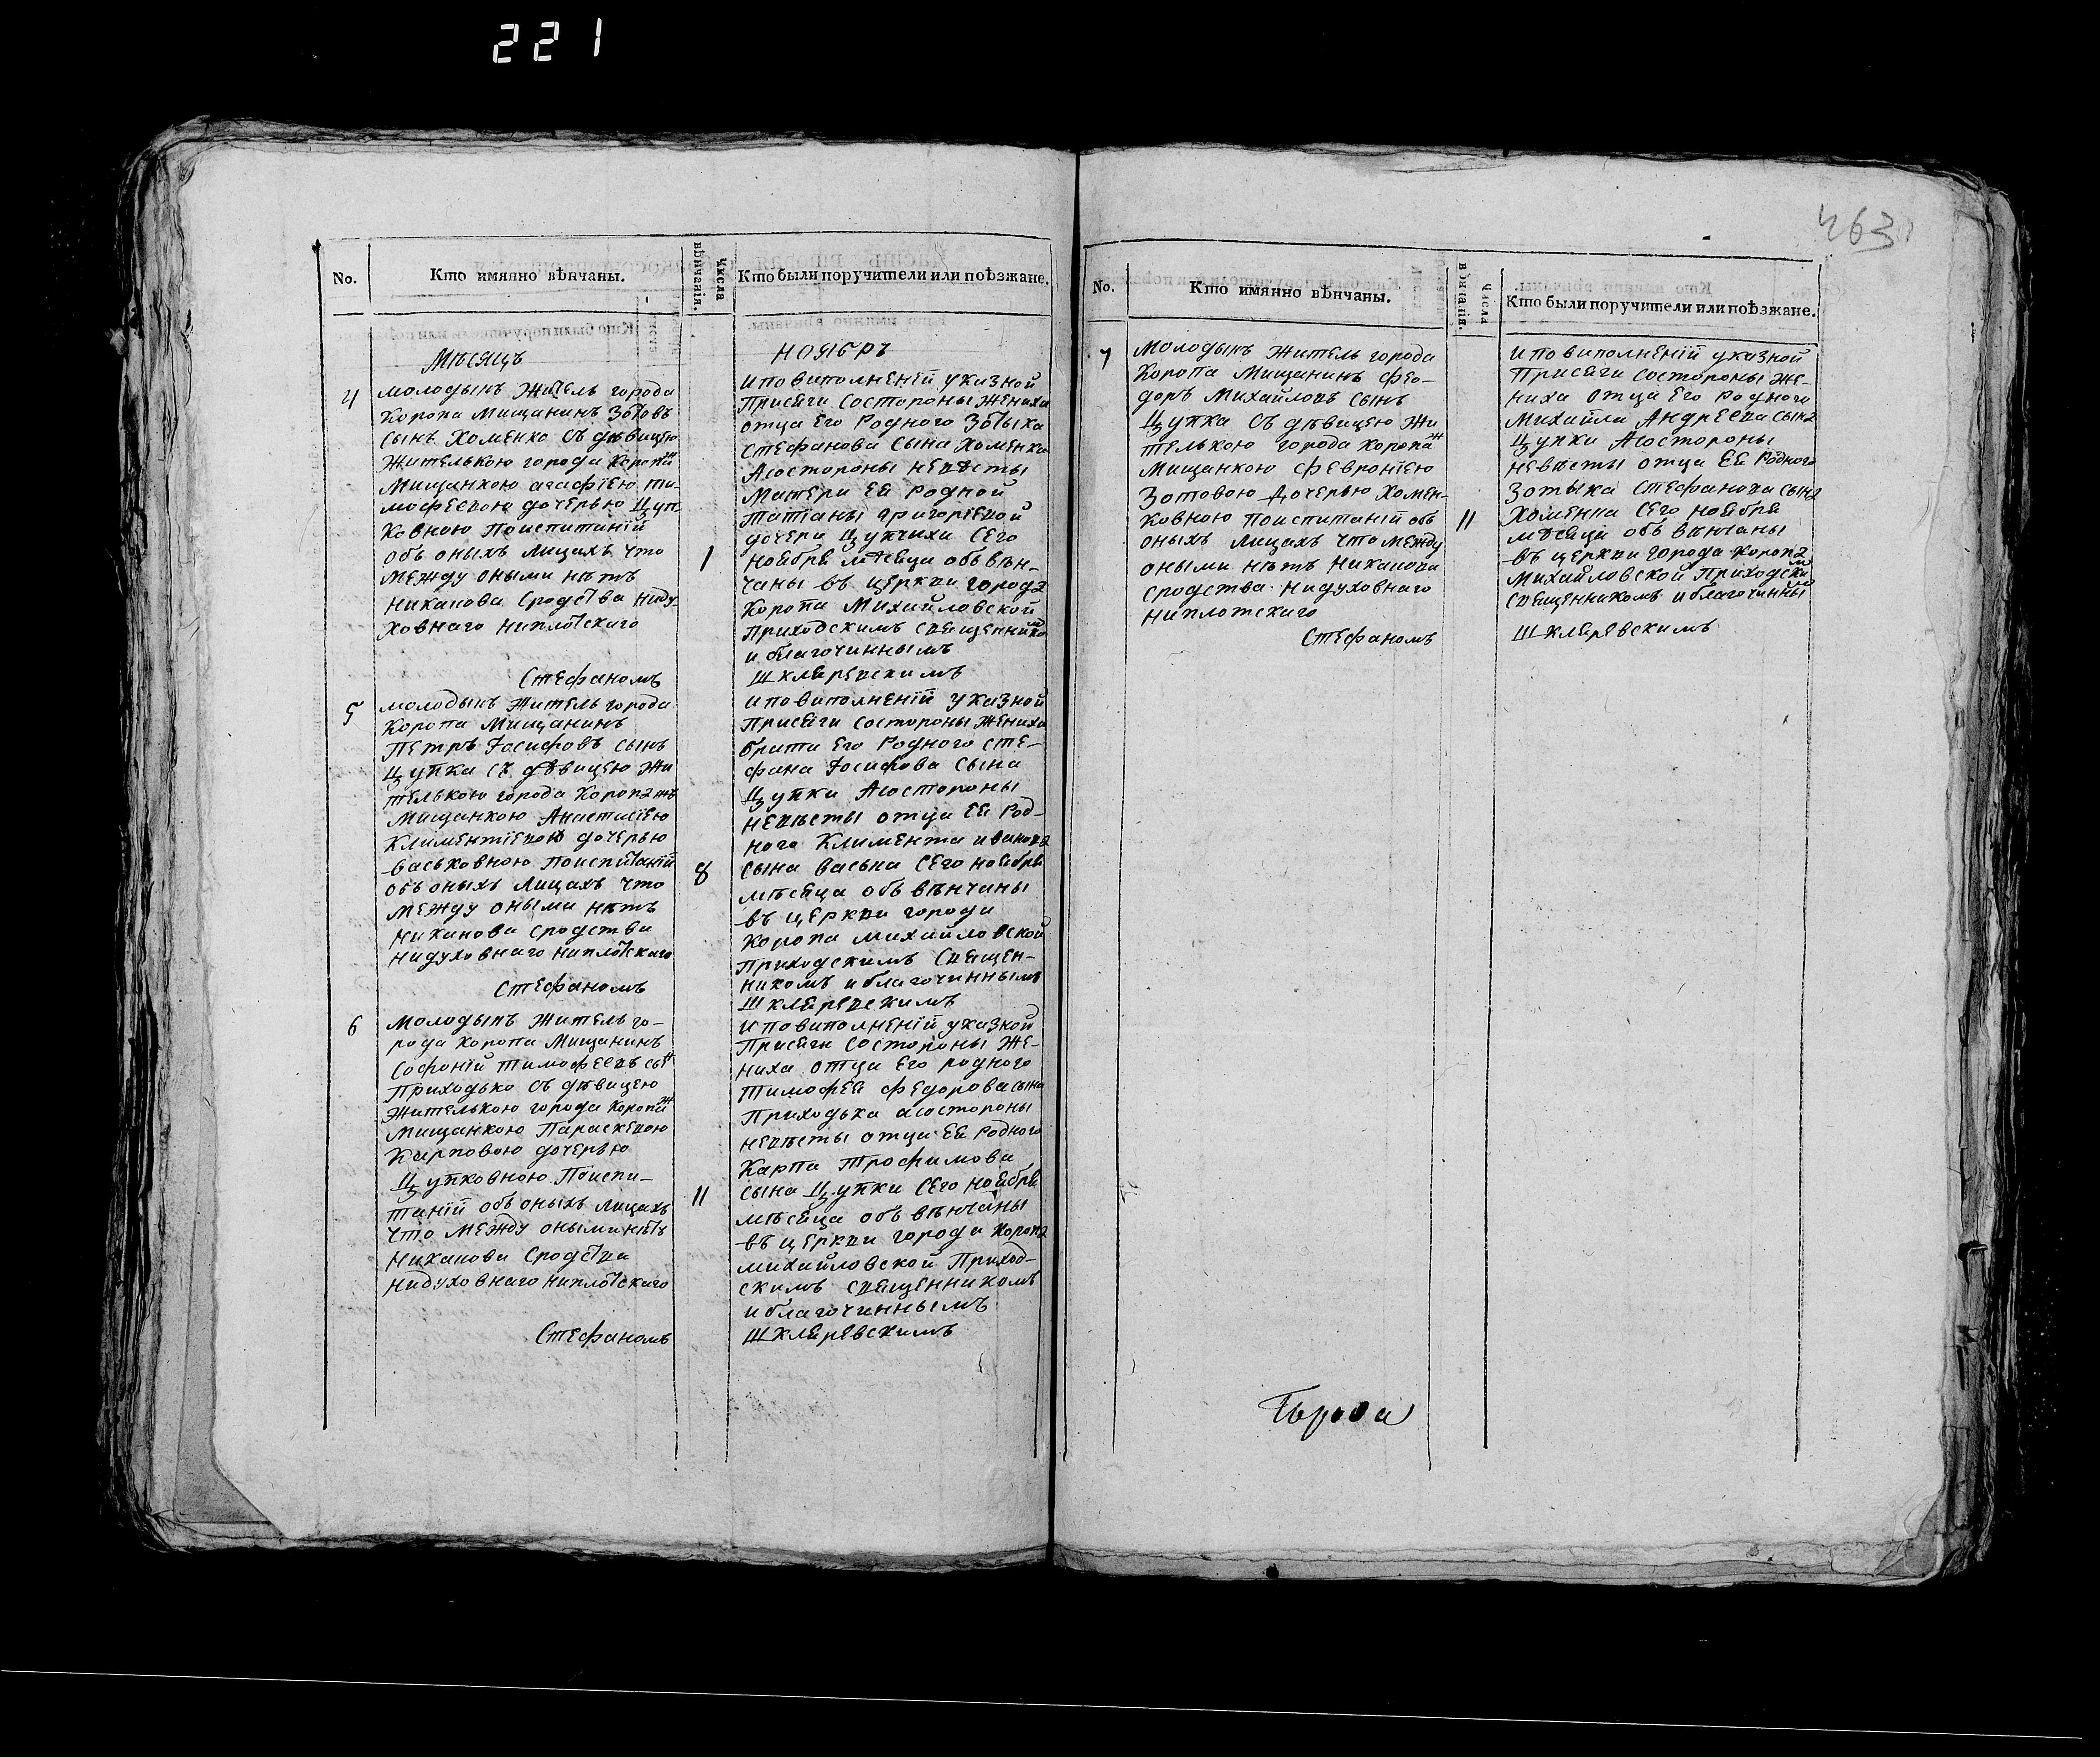 221
463
No.
Кто имянно вѣнчаны.
Числа вѣнчанія.
Кто были поручители или поѣзжане.
Мѣсяцъ
ноябрь
4
молодыкъ житель города
Коропа Мищанинъ Зотовъ
сынъ Хоменко съ дѣвицею
жителькою города Коропа жъ
Мищанкою агафіею ти-
мофеевою дочерью Цуп-
ковною Поиспитаній
объ оныхъ лицахъ что
между оными нѣтъ
никакова сродства ниду-
ховнаго ниплотскаго
Стефаномъ
1
иповиполненій указной
Присяги состороны жениха
отца его Родного Зотыка
Стефанова Сына Хоменка
Асостороны невѣсты
Матери ея родной
татіаны григоріевой
дочери Цупчихи Сего
ноября мѣсяца объ вѣн-
чаны въ церкви города
Коропа Михайловской
Приходскимъ священником
и благочиннымъ
Шкляревскимъ
5
молодыкъ житель города
Коропа Мищанинъ
Петръ Іосифовъ сынъ
Цупка съ дѣвицею жи
телькою города Коропа жъ
Мищанкою Анастасіею
Климентіевою дочерью
Васьковною Поиспитаній
объ оныхъ лицахъ что
между оными нѣтъ
никакова сродства
нидуховнаго ниплотскаго
Стефаномъ
8
иповиполненій указной
Присяги состороны жениха
брата его Родного Сте-
фана Іосифова Сына
Цупки Асостороны
невѣсты отца ея Род-
ного Климента иванова
сына Васька Сего ноября
мѣсяца объ вѣнчаны
въ церкви города
Коропа Михайловской
Приходскимъ Священ-
никомъ иблагочиннымъ
Шкляревскимъ
6
молодыкъ житель го-
рода Коропа Мищанинъ
Софоній тимофеевъ сын
Приходько съ дѣвицею
жителькою города Коропа ж
Мищанкою Параскевою
Карповою дочерью
Цупковною Поиспи-
таній объ оныхъ лицахъ
что между оными нѣтъ
никакова сродства
нидуховнаго ниплотскаго
Стефаномъ
11
иповиполненій указной
Присяги состороны же-
ниха отца его родного
тимофея федорова сына
Приходька асостороны
невѣсты отца ея Родного
Карпа Трофимова
сына Цупки Сего ноября
мѣсяца объ вѣнчаны
въ церкви города Коропа
Михайловской Приход-
скимъ священникомъ
иблагочиннымъ
Шкляревскимъ
No.
Кто имянно вѣнчаны.
Числа вѣнчанія.
Кто были поручители или поѣзжане.
7
Молодыкъ житель города
Коропа Мищанинъ Фео-
доръ Михайловъ сынъ
Цупка съ дѣвицею жи
телькою города Коропа ж
Мищанкою Февроніею
Зотовою дочерью Хомен-
ковною Поиспитаній объ
оныхъ лицахъ что между
оными нѣтъ никакова
сродства нидуховнаго
ниплотскаго
Стефаномъ
11
иповиполненій указной
Присяги состороны же-
ниха отца его Родного
Михайла Андреева сына
Цупки Асостороны
невѣсты отца ея Родного
Зотыка Стефанова сына
Хоменка Сего ноября
мѣсяца объ вѣнчаны
въ церкви города Коропа
Михайловской Приходским
священникомъ иблагочинным
Шкляревскимъ